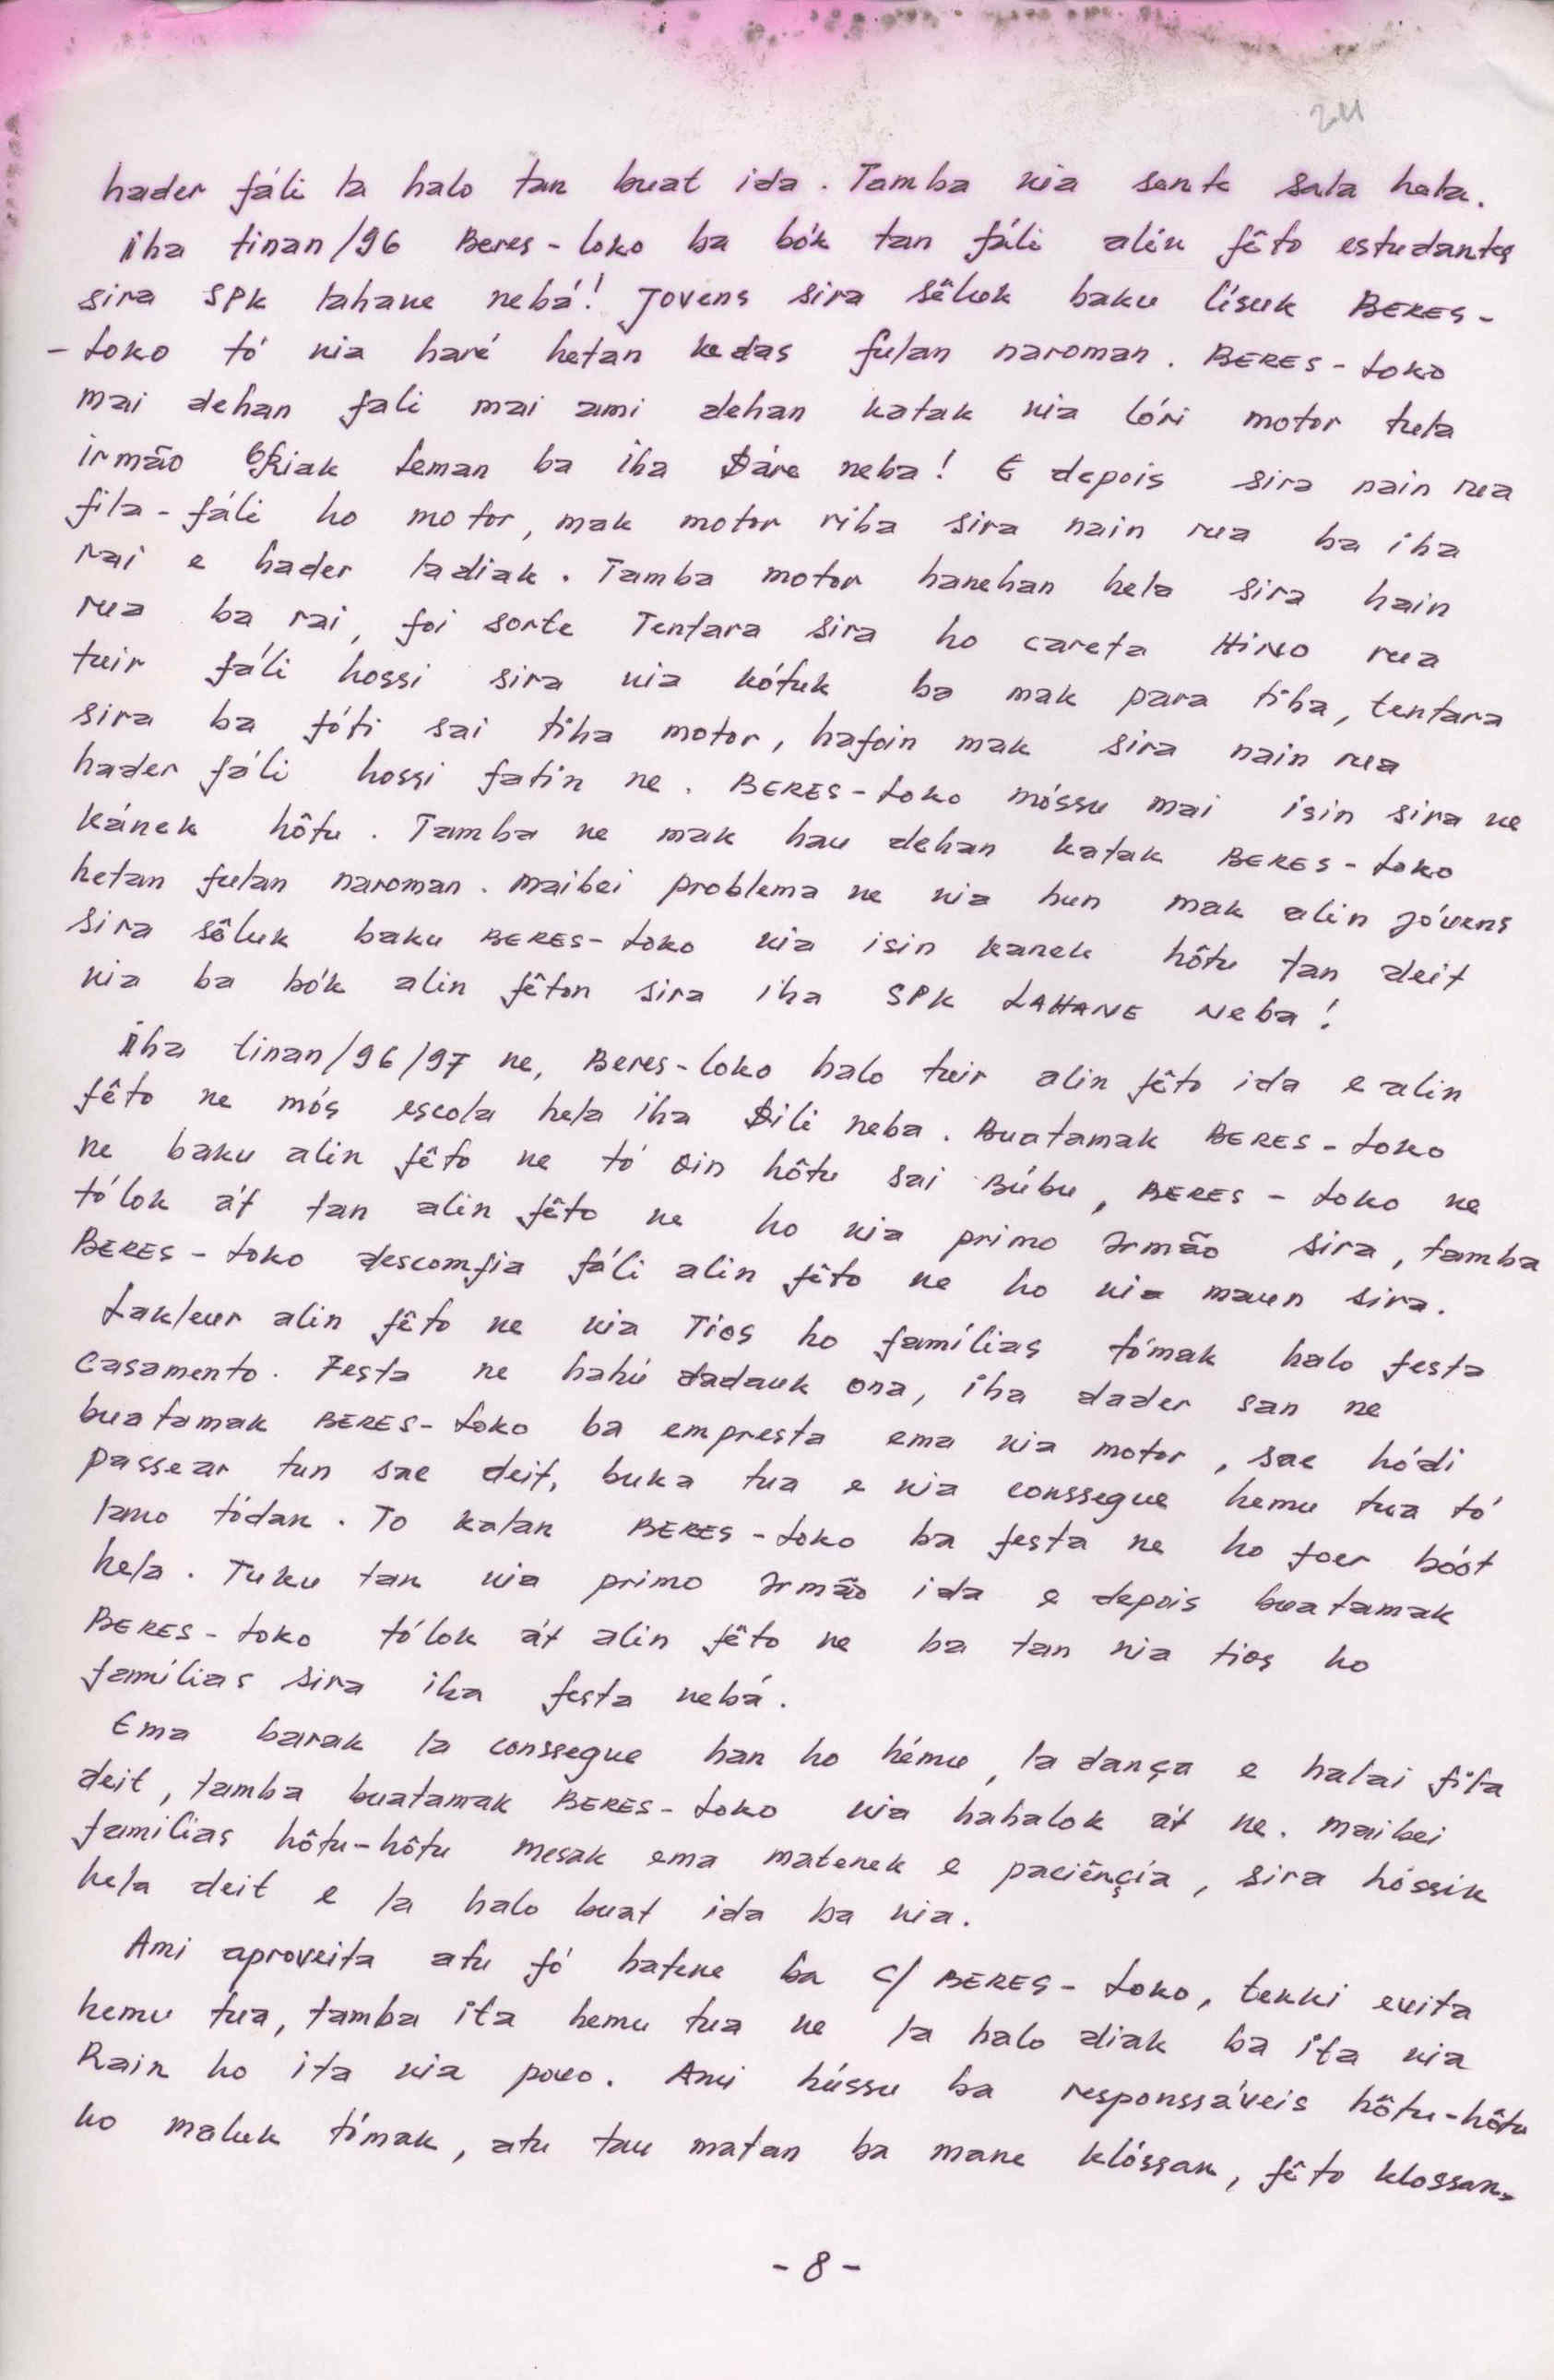 211
hader fáli la halo tan buat ida. Tamba nia sente sala hela.
Iha tinan/96 Beres-loko ba bók tan fáli alin fêto estudantes
sira SPK lahane nebá! Jovens sira sêluk baku lísuk BERES-
-LOKO tó nia haré hetan kedas fulan naroman. BERES-LOKO
mai dehan fali mai ami dehan katak nia lóri motor tula
irmão Kiak Leman ba iha Dáre neba! E depois sira nain rua
fila-fáli ho motor, mak motor riba sira nain rua ba iha
rai e hader ladiak. Tamba motor hanehan hela sira hain
rua ba rai, foi sorte Tentara sira ho careta HINO rua
tuir fáli hossi sira nia kótuk ba mak para tiha, tentara
sira ba fóti sai tiha motor, hafoin mak sira nain rua
hader fáli hossi fatin ne. BERES-LOKO móssu mai isin sira ne
kánek hôtu. Tamba ne mak hau dehan katak BERES-LOKO
hetan fulan naroman. Maibei problema ne nia hun mak alin jóvens
sira sôluk baku BERES-LOKO nia isin kanek hôtu tan deit
nia ba bók alin fêton sira iha SPK LAHANE Neba!
Iha tinan/96/97 ne, Beres-loko halo tuir alin fêto ida e alin
fêto ne mós escola hela iha Dili neba. Buatamak BERES-LOKO
ne baku alin fêto ne tó oin hôtu sai Búbu, BERES-LOKO ne
tólok át tan alin fêto ne ho nia primo Irmão sira, tamba
BERES-LOKO descomfia fáli alin fêto ne ho nia maun sira.
Lakleur alin fêto ne nia Tios ho famílias tómak halo festa
Casamento. Festa ne hahú dadauk ona, iha dader san ne
buatamak BERES-LOKO ba empresta ema nia motor, sae hódi
passear tun sae deit, buka tua e nia conssegue hemu tua tó
lano tódan. To kalan BERES-LOKO ba festa ne ho foer bóót
hela. Tuku tan nia primo Irmão ida e depois buatamak
BERES-LOKO tólok át alin fêto ne ba tan nia tios ho
famílias sira iha festa nebá.
Ema barak la conssegue han ho hému, la dança e halai fila
deit, tamba buatamak BERES-LOKO nia hahalok át ne. Maibei
familias hôtu-hôtu mesak ema matenek e paciênçia, sira hóssik
hela deit e la halo buat ida ba nia.
Ami aproveita atu fó hatene ba C/ BERES-LOKO, tenki evita
hemu tua, tamba ita hemu tua ne la halo diak ba ita nia
Rain ho ita nia povo. Ami hússu ba responssáveis hôtu-hôtu
ho maluk tómak, atu tau matan ba mane klóssan, fêto klossan,
-8-